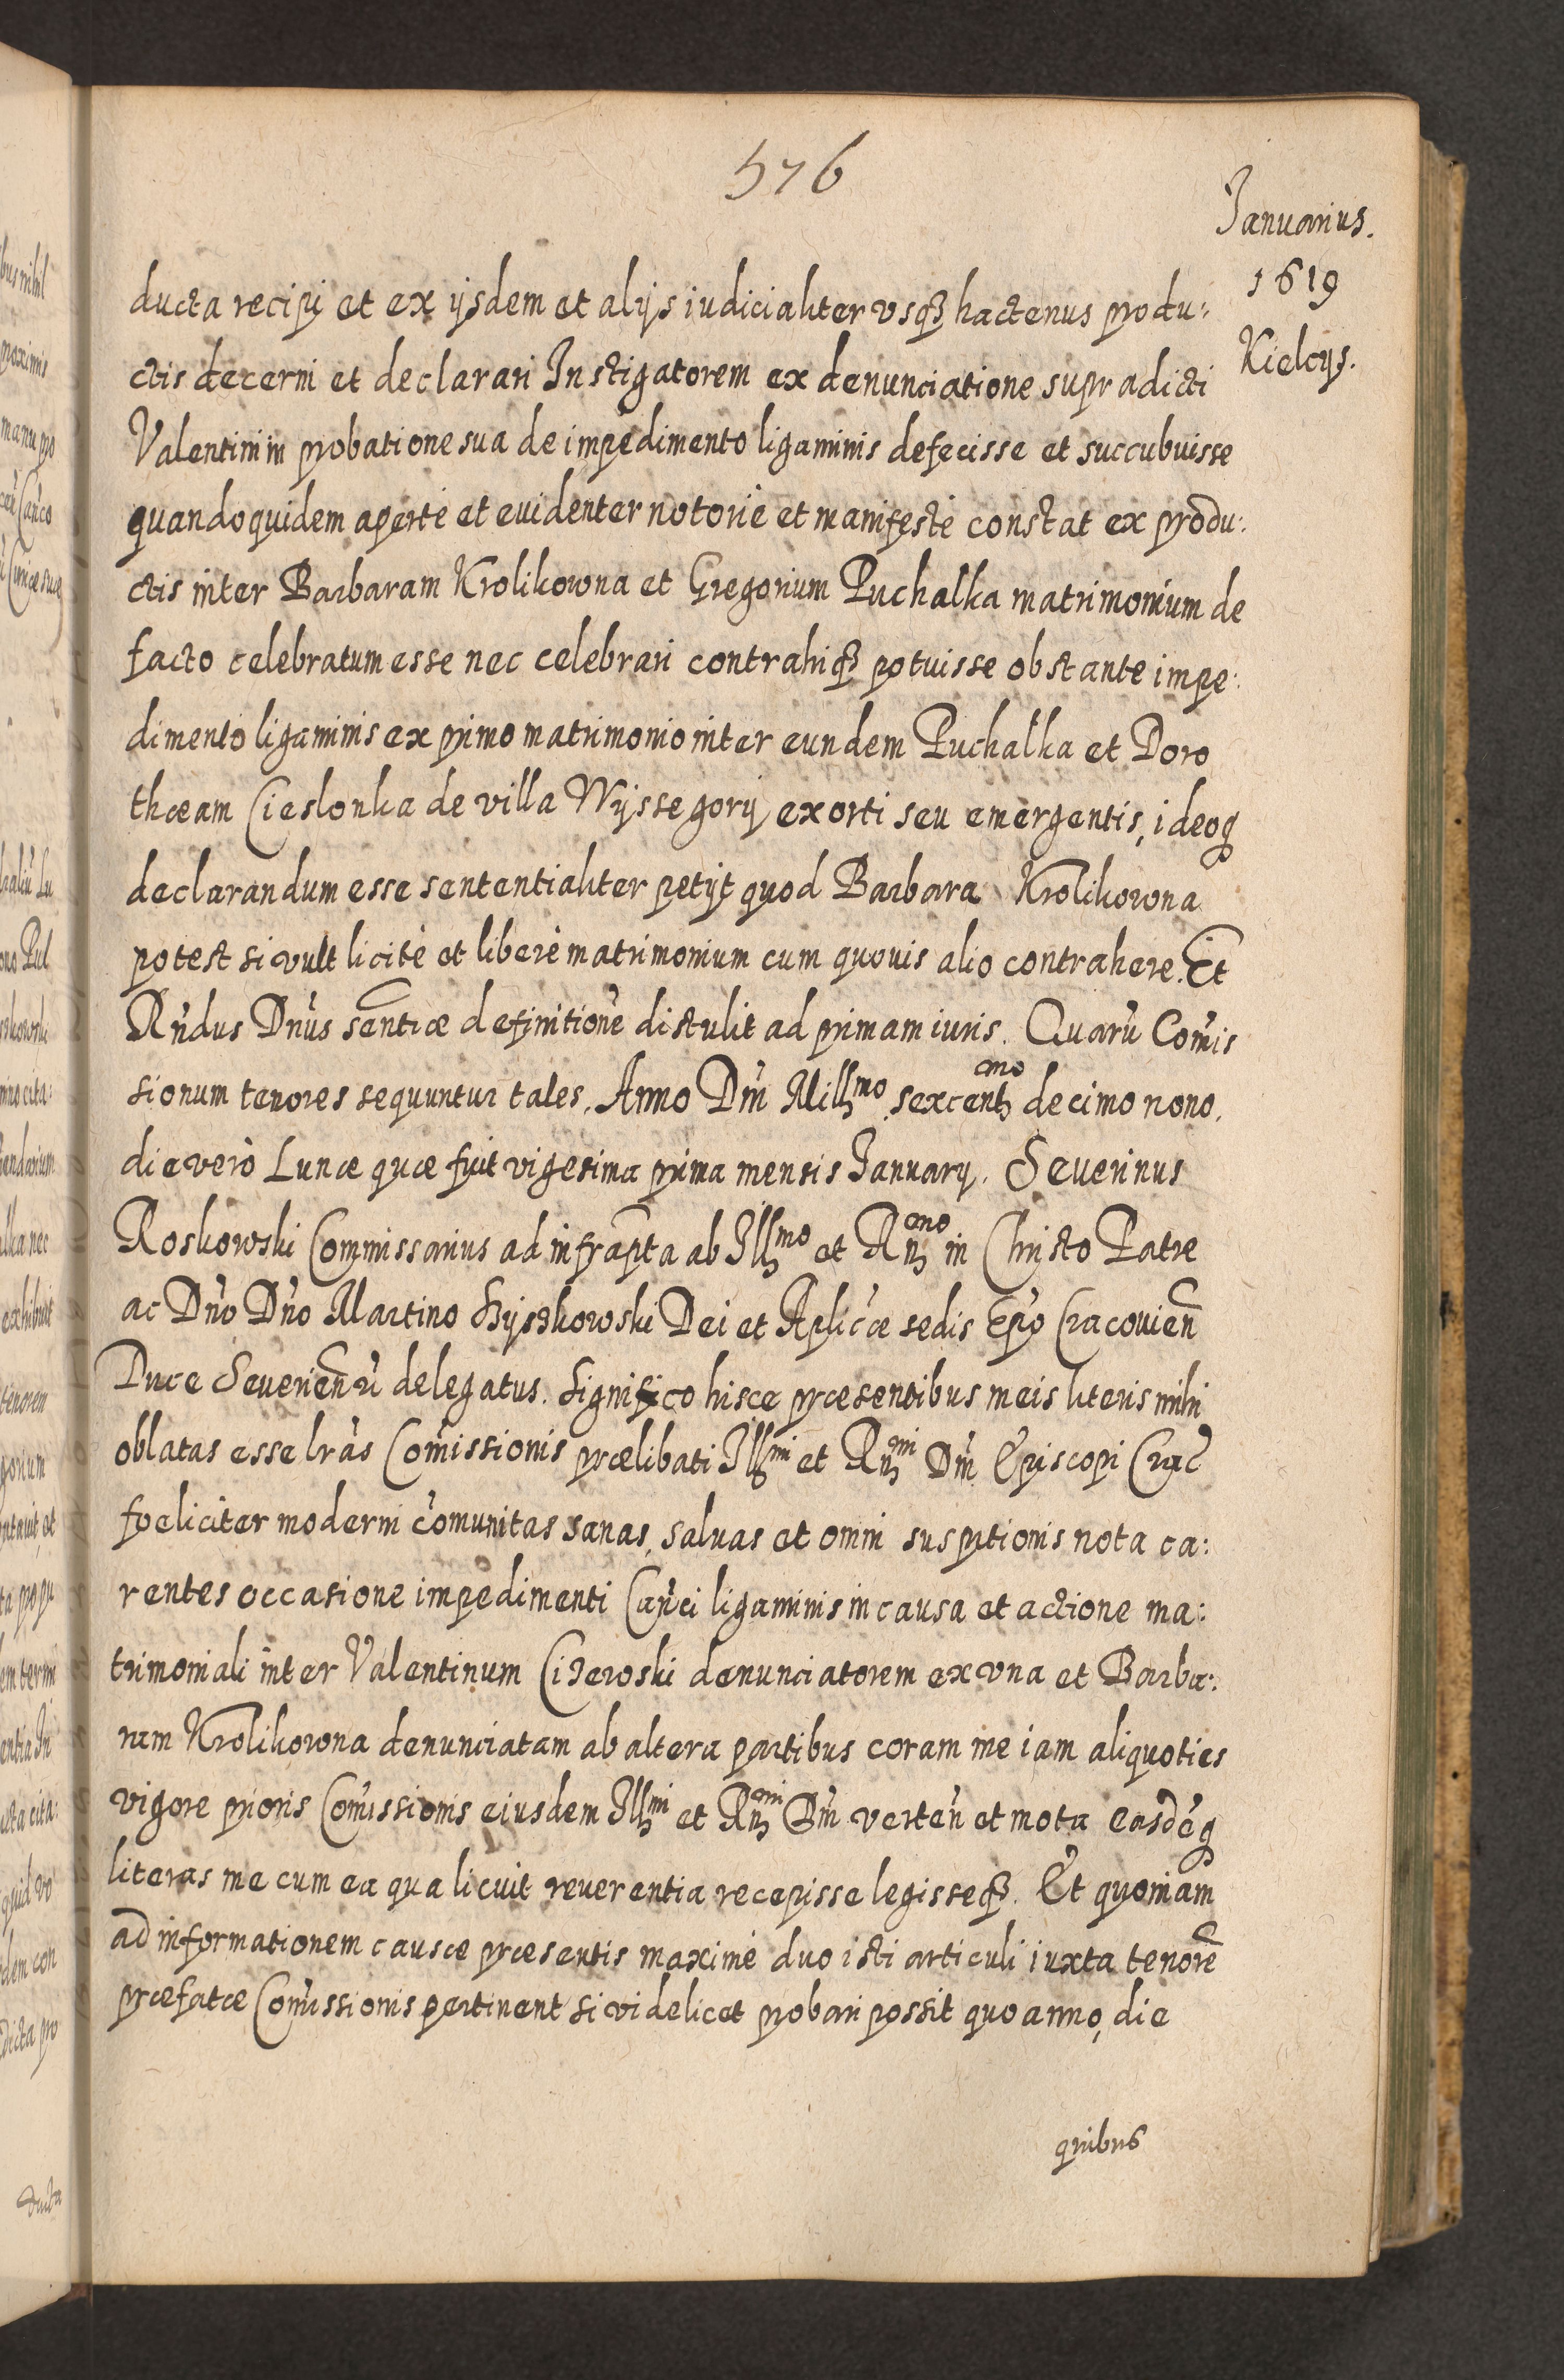 576
Januarius.
1619
Kielcijs.
ducta recipi et ex ijsdem et alijs iudicialiter vsq3 hactenus produ:
ctis decerni et declarari Instigatorem ex denunciatione supradicti
Valentini in probatione sua de impedimento ligaminis defecisse et succubuisse
quandoquidem apertè et euidenter notoriè et manifestè constat ex produ:
ctis inter Barbaram Krolikowna et Gregorium Puchalka matrimonium de
facto celebratum esse nec celebrari contrahiq3 potuisse obstante impe:
dimento ligaminis ex primo matrimonio inter eundem Puchalka et Doro
thæam Cieslonka de villa Wyssegory exorti seu emergentis, ideoq
declarandum esse sententialiter petijt quod Barbara Krolikowna
potest si vult licitè et liberè matrimonium cum quouis alio contrahere. Et
Rndus Dnus sentiæ definitione distulit ad primam iuris. Quaru Comis
sionum tenores sequuntur tales. Anno Dni Millmo sexcentmo decimo nono.
die verò Lunæ quæ fuit vigesima prima mensis January. Seuerinus
Roskowski Commissarius ad infrapta ab Illmo et Rnmo in Christo Patre
ac Dno Dno Martino Szyszkowski Dei et Aplicæ sedis Epo Cracouien
Duce Seuerien ù delegatus. Significo hisce præsentibus meis literis mihi
oblatas esse lras Comissionis prælibati Illmi et Rnmi Dni Episcopi Crac
foeliciter moderni comunitas sanas, saluas et omni susptionis nota ca:
rentes occasione impedimenti Canci ligaminis in causa et actione ma:
trimoniali inter Valentinum Cizewski denunciatorem ex vna et Barba:
ram Krolikowna denunciatam ab altera partibus coram me iam aliquoties
vigore prioris Comissionis eiusdem Illmi et Rnmi Dni verten et mota easdeq
literas me cum ea qua licuit reuerentia recepisse legisseq3. Et quoniam
ad informationem causæ præsentis maximè duo isti articuli iuxta tenore
præfatæ Comissionis pertinent si videlicet probari possit quo anno, die
quibus